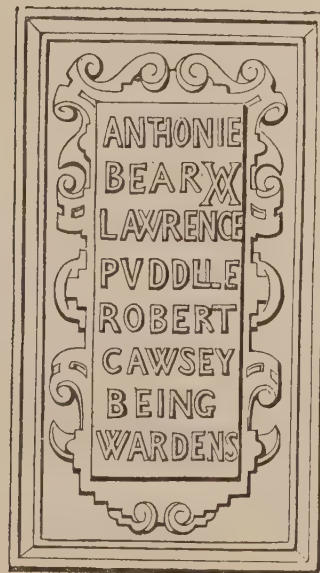 ANTHONIE
BEARW
LAWRENCE
PVDDLLE
ROBERT
CAWSEY
BEING
WARDENS